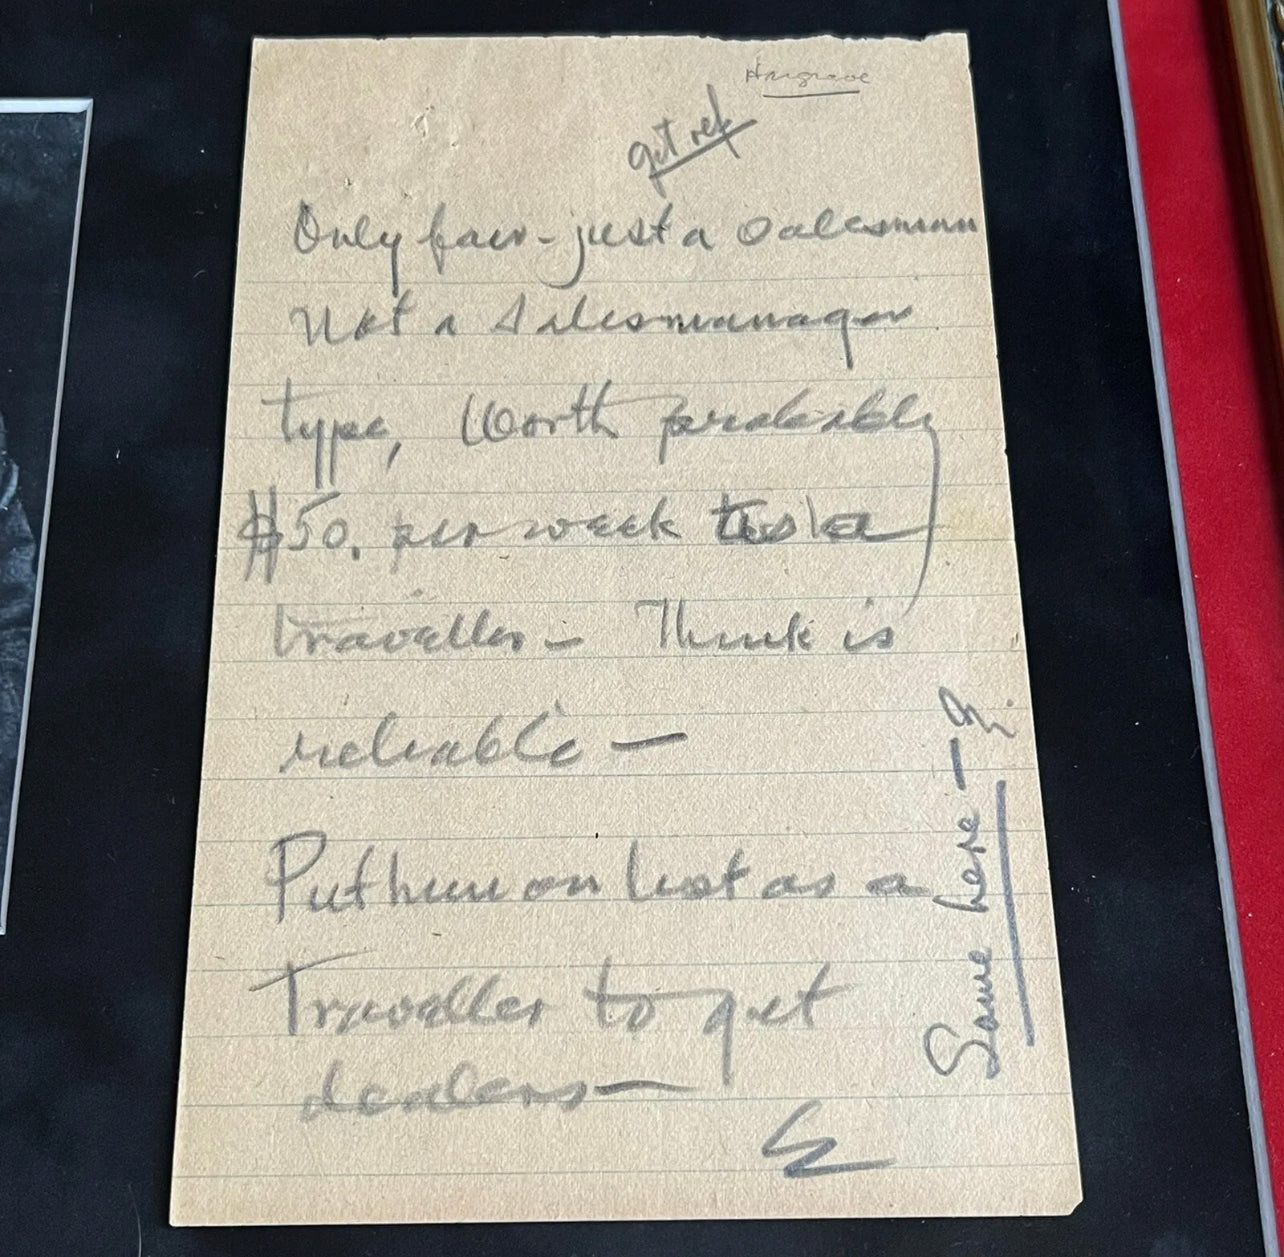 Hargrave
get ref
Only fair - just a salesman
Not a Salesmanager
type, Worth probably
$50. per week as a
traveller - Think is
reliable -
Put him on list as a
Traveller to get
dealers -
E
Same here -